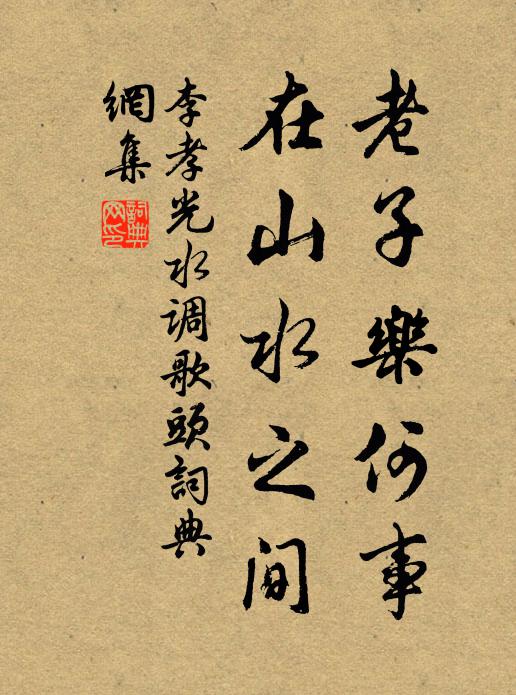 老子樂何事
在山水之间
李孝光水调歌頭詞典
網集
詞典
网印